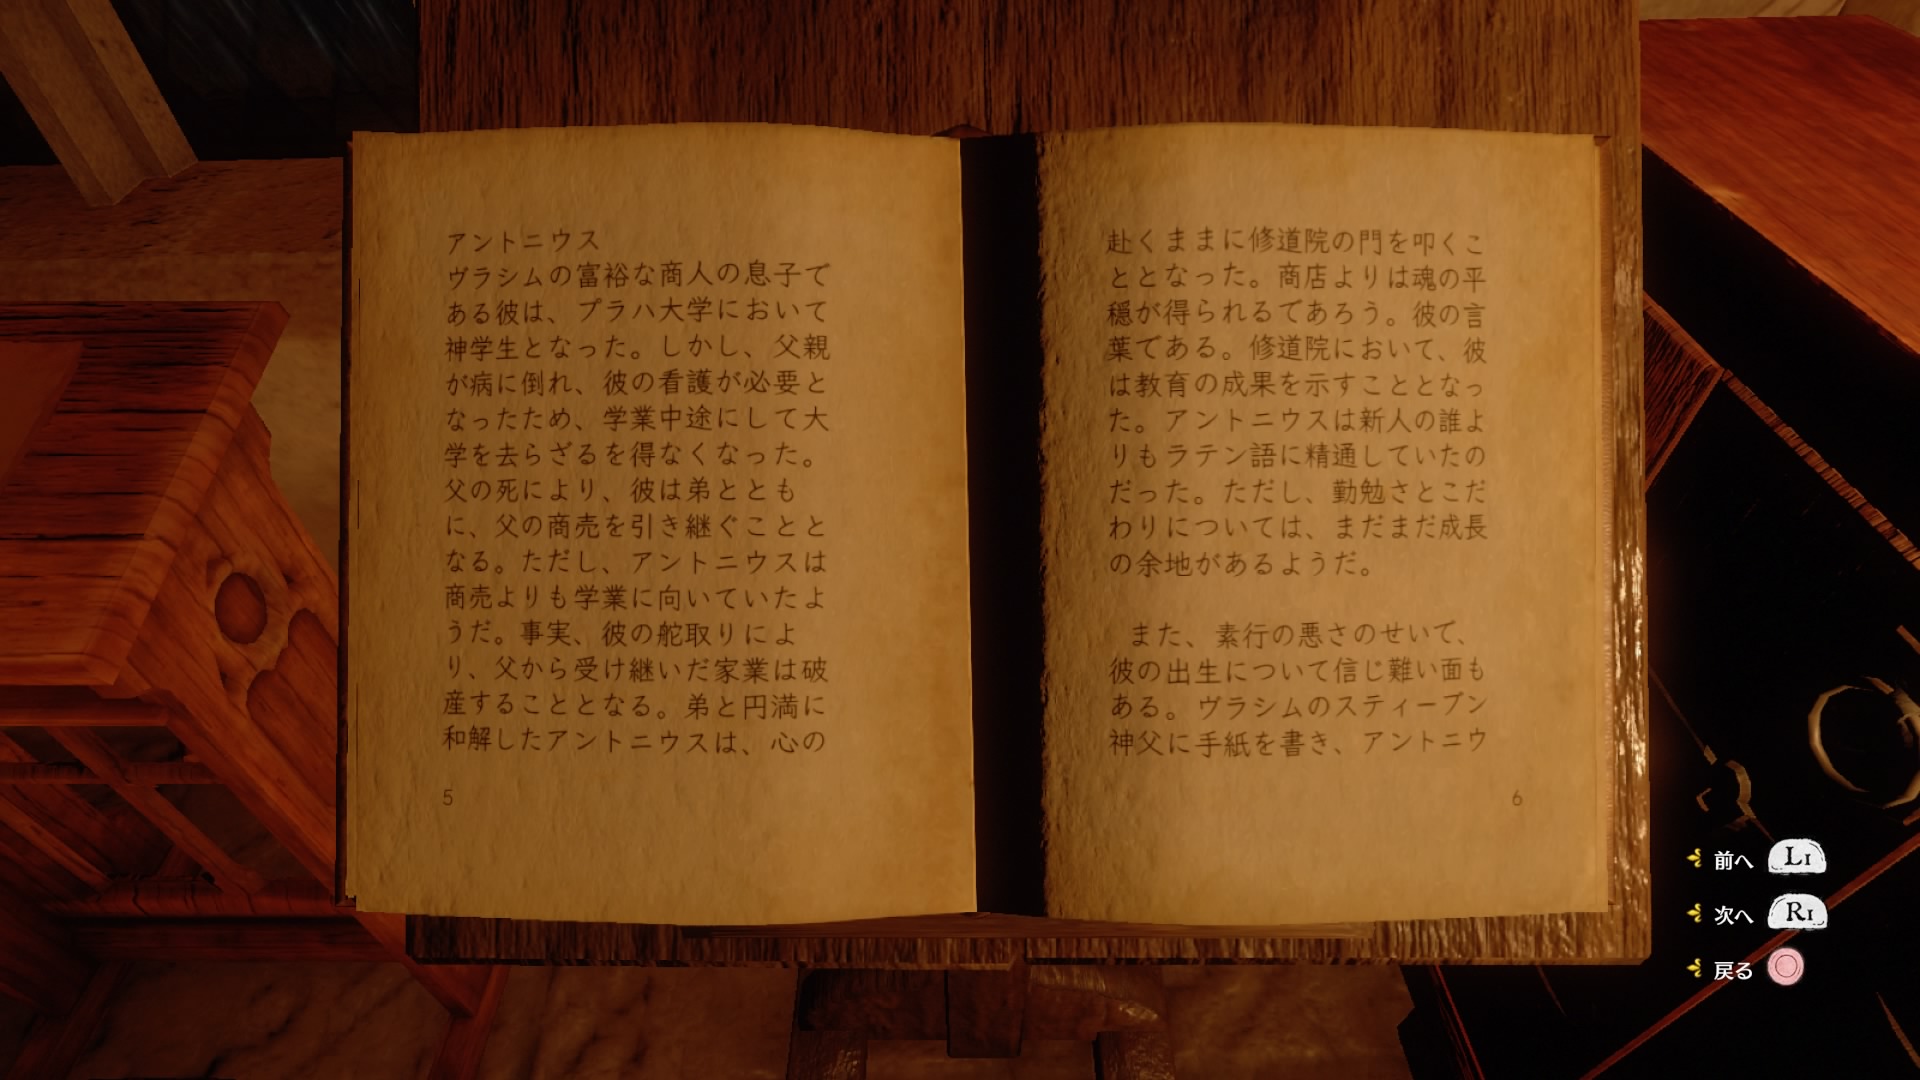 アントニウス
ヴラシムの富裕な商人の息子で
ある彼は、プラハ大学において
神学生となった。しかし、父親
が病に倒れ、彼の看護が必要と
なったため、学業中途にして大
学を去らざるを得なくなった。
父の死により、彼は弟ととも
に、父の商売を引き継ぐことと
なる。ただし、アントニウスは
商売よりも学業に向いていたよ
うだ。事実、彼の舵取りによ
り、父から受け継いだ家業は破
産することとなる。弟と円満に
和解したアントニウスは、心の
5
赴くままに修道院の門を叩くこ
ととなった。商店よりは魂の平
穏が得られるであろう。彼の言
葉である。修道院において、彼
は教育の成果を示すこととなっ
た。アントニウスは新人の誰よ
りもラテン語に精通していたの
だった。ただし、勤勉さとこだ
わりについては、まだまだ成長
の余地があるようだ。
また、素行の悪さのせいて、
彼の出生について信じ難い面も
ある。ヴラシムのスティーブン
神父に手紙を書き、アントニウ
6
前へ L1
次へ R1
戻る